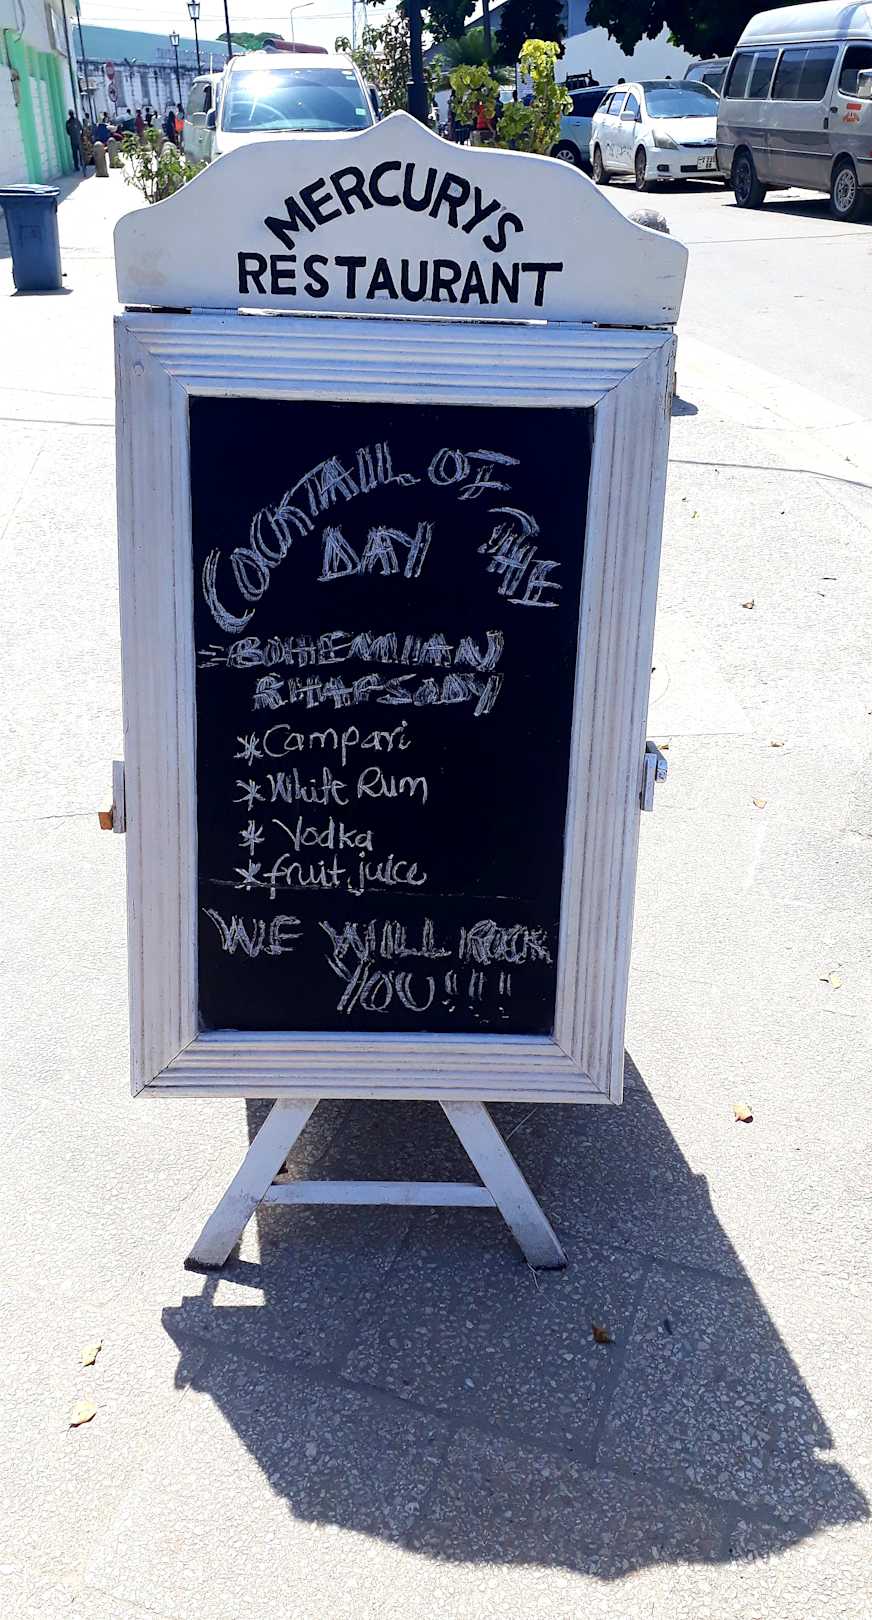 MERCURY'S
RESTAURANT
COCKTAIL OF THE
DAY
=BOHEMIAN
RHAPSODY
*Campari
*White Rum
* Vodka
*fruit juice
WE WILL ROCK
YOU!!!